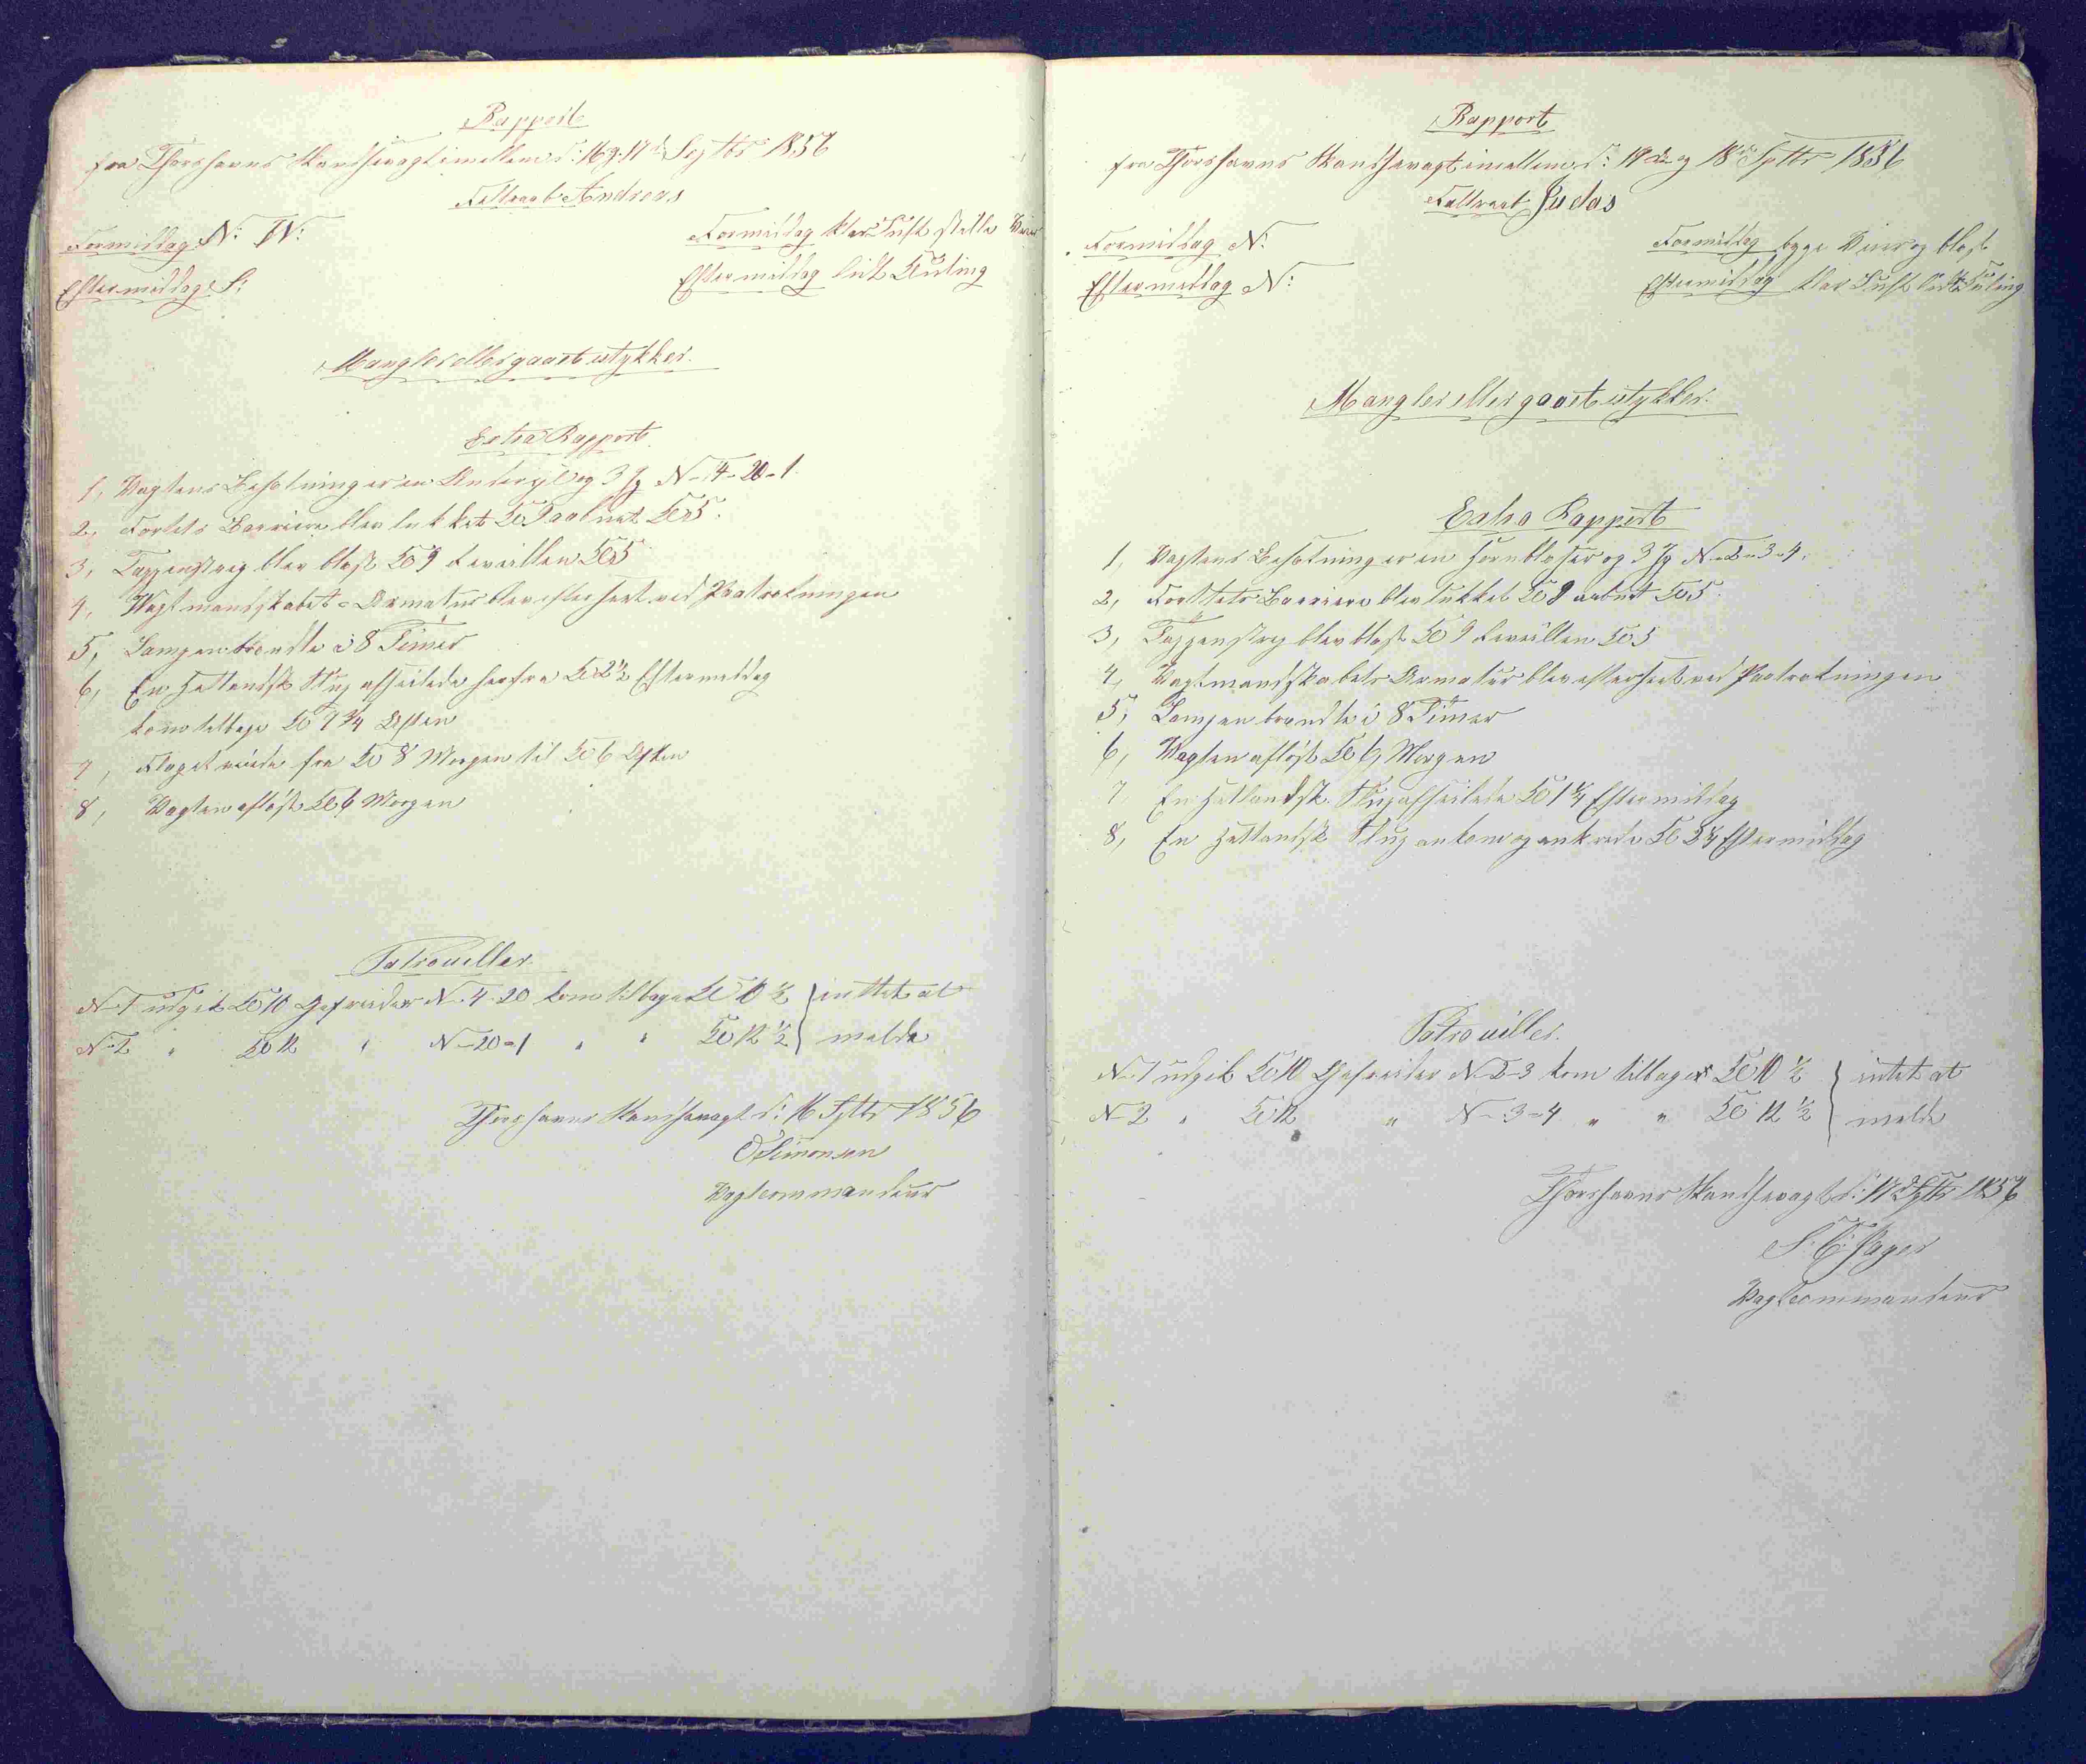 Rapport
fra Thorshavns Skandsevagt imellem d: 16 og 17de Septbr 1856
Feltraab Andreas
Formiddag N: W:
Formiddag klar Luft stille Veir
Eftermiddag S:
Eftermiddag lidt Kuling
Mangler eller gaaet istykker.
Extra Rapport
1, Vagtens Besætning er en Underjæ og 3 Jg N-4-20-1.
2, Fortets Barriere blev lukket Kl 9 aabnet Kl 5.
3, Tappenstreg blev blæst Kl 9 Reveillen Kl 5
4, Vagtmandskabets Armatur blev efterseet ved Paatrædningen
5, Lampen brændte i 8 Timer
6, En Hetlandsk Slup afseilede herfra Kl 2 1/2 Eftermiddag
kom tilbage Kl 7 3/4 Aften
7, Flaget vaiede fra Kl 8 Morgen til Kl 6 Aften
8, Vagten afløst Kl 6 Morgen
Patrouiller
N-1 udgik Kl 10 Gefreider N-4-20 kom tilbage Kl 10 1/2 } intet at
N-2 " Kl 12 " N-20-1 " " Kl 12 1/2 } melde
Thorshavns Skandsevagt d: 16 Septbr 1856
O Simonsen
Vagtcommandeur
Rapport
fra Thorshavns Skandsevagt imellem d: 17de og 18de Septbr 1856
Feltraab Judas
Formiddag N:
Formiddag byge Veir og blæst
Eftermiddag N:
Eftermiddag klar Luft lidt Kuling
Mangler eller gaaet istykker.
Extra Rapport
1, Vagtens Besætning er en Hornblæser og 3 Jg N-2-3-4.
2, Forttets Barriere blev lukket Kl 9 aabnet Kl 5.
3, Tappenstreg blev blæst Kl 9 Reveillen Kl 5
4, Vagtmandskabets Armatur blev efterseet ved Paatrædningen
5, Lampen brændte i 8 Timer
6, Vagten afløst Kl 6, Morgen
7 En Hetlandsk Slup afseilede Kl 1 1/4 Eftermiddag
8, En Hetlandsk Slup ankom og ankrede Kl 3 1/4 Eftermiddag
Patrouiller.
N-1 udgik Kl 10 Gefreider N-2-3 kom tilbage Kl 10 1/2 } intet at
N 2 " Kl 12 " N-3-4 " " Kl 12 1/2 } melde
Thorshavns Skandsevagt d: 17de Septbr 1856
Vagtcommandeur